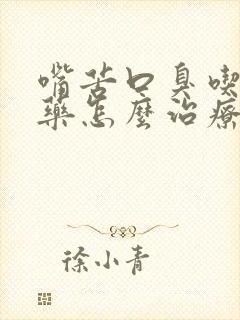 嘴苦口臭喫
藥怎麼治療
徐小青